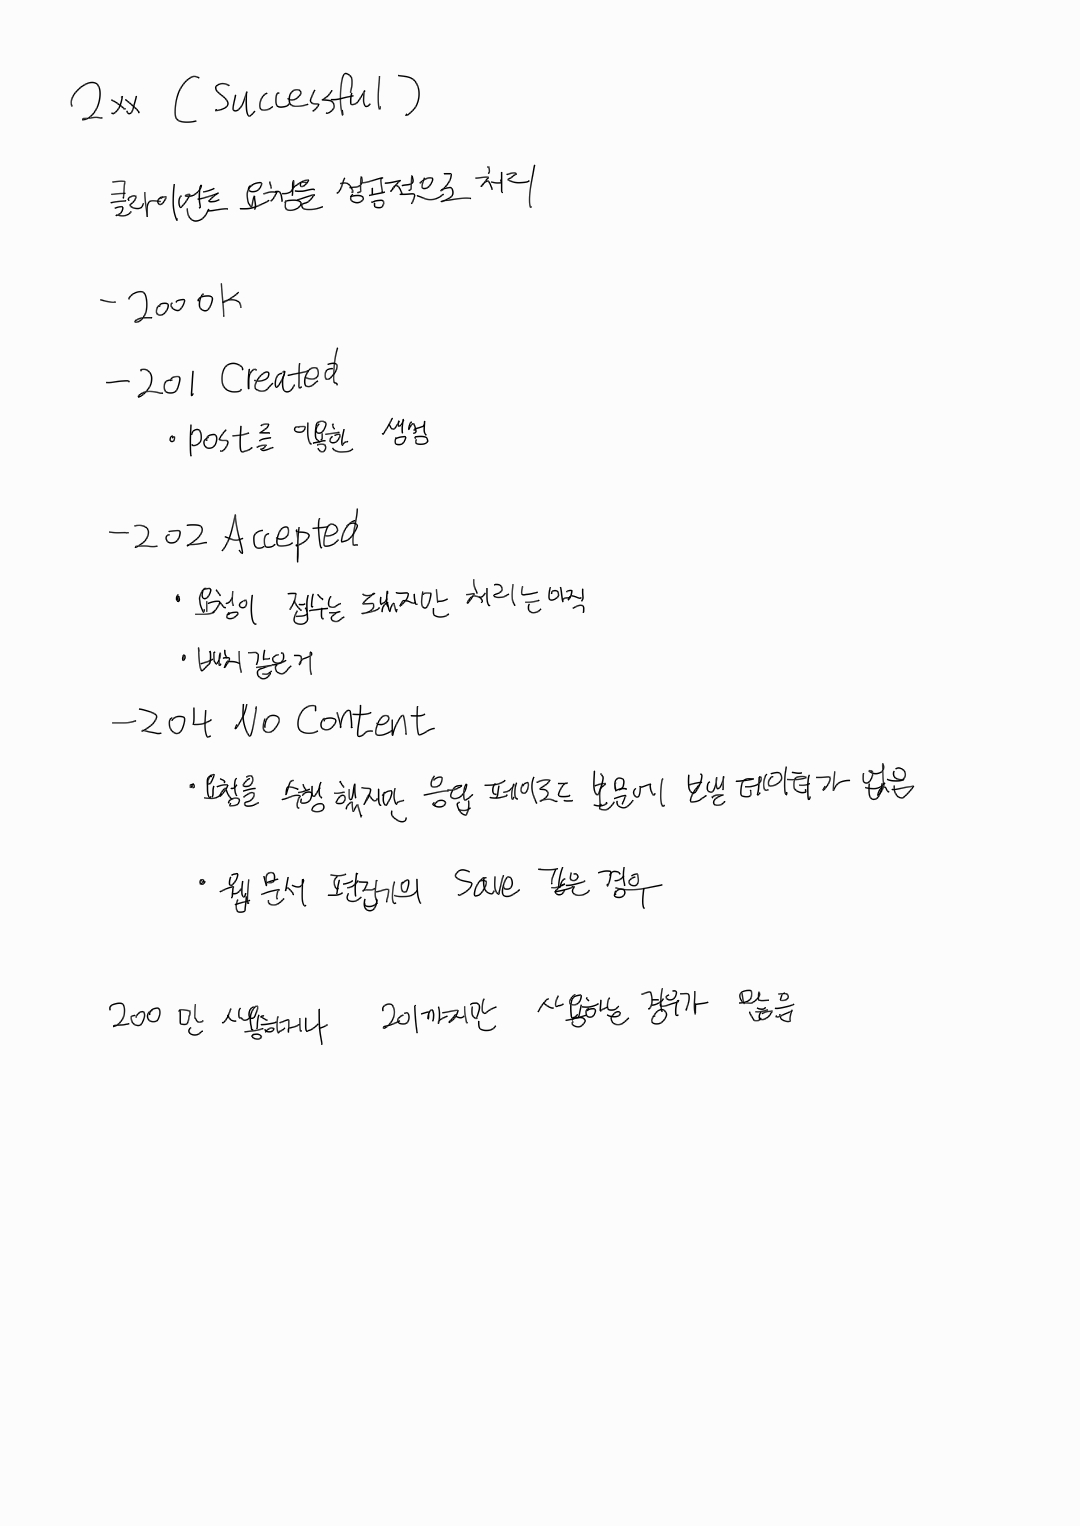 2xx (Successful)
클라이언트 요청을 성공적으로 처리
- 200 OK
- 201 Created
• post를 이용한
- 202 Accepted
• 요청이 접수는 되었지만 처리는 아직
• 배치 같은거
- 204 No Content
• 요청을 수행 했지만 응답 페이로드 본문에 보낼 데이터가 없음
• 웹 문서 편집기의 Save 같은 경우
200 만 사용하거나 201까지만 사용하는 경우가 많음